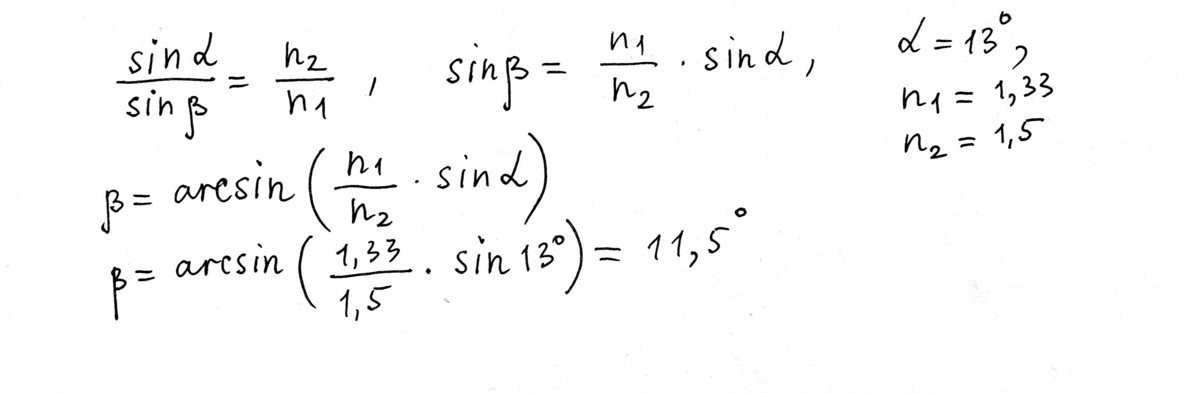 sin α / sin β = n₂ / n₁ , sin β = n₁ / n₂ · sin α, α = 13°,
n₁ = 1,33
n₂ = 1,5
β = arcsin ( n₁ / n₂ · sin α )
β = arcsin ( 1,33 / 1,5 · sin 13° ) = 11,5°